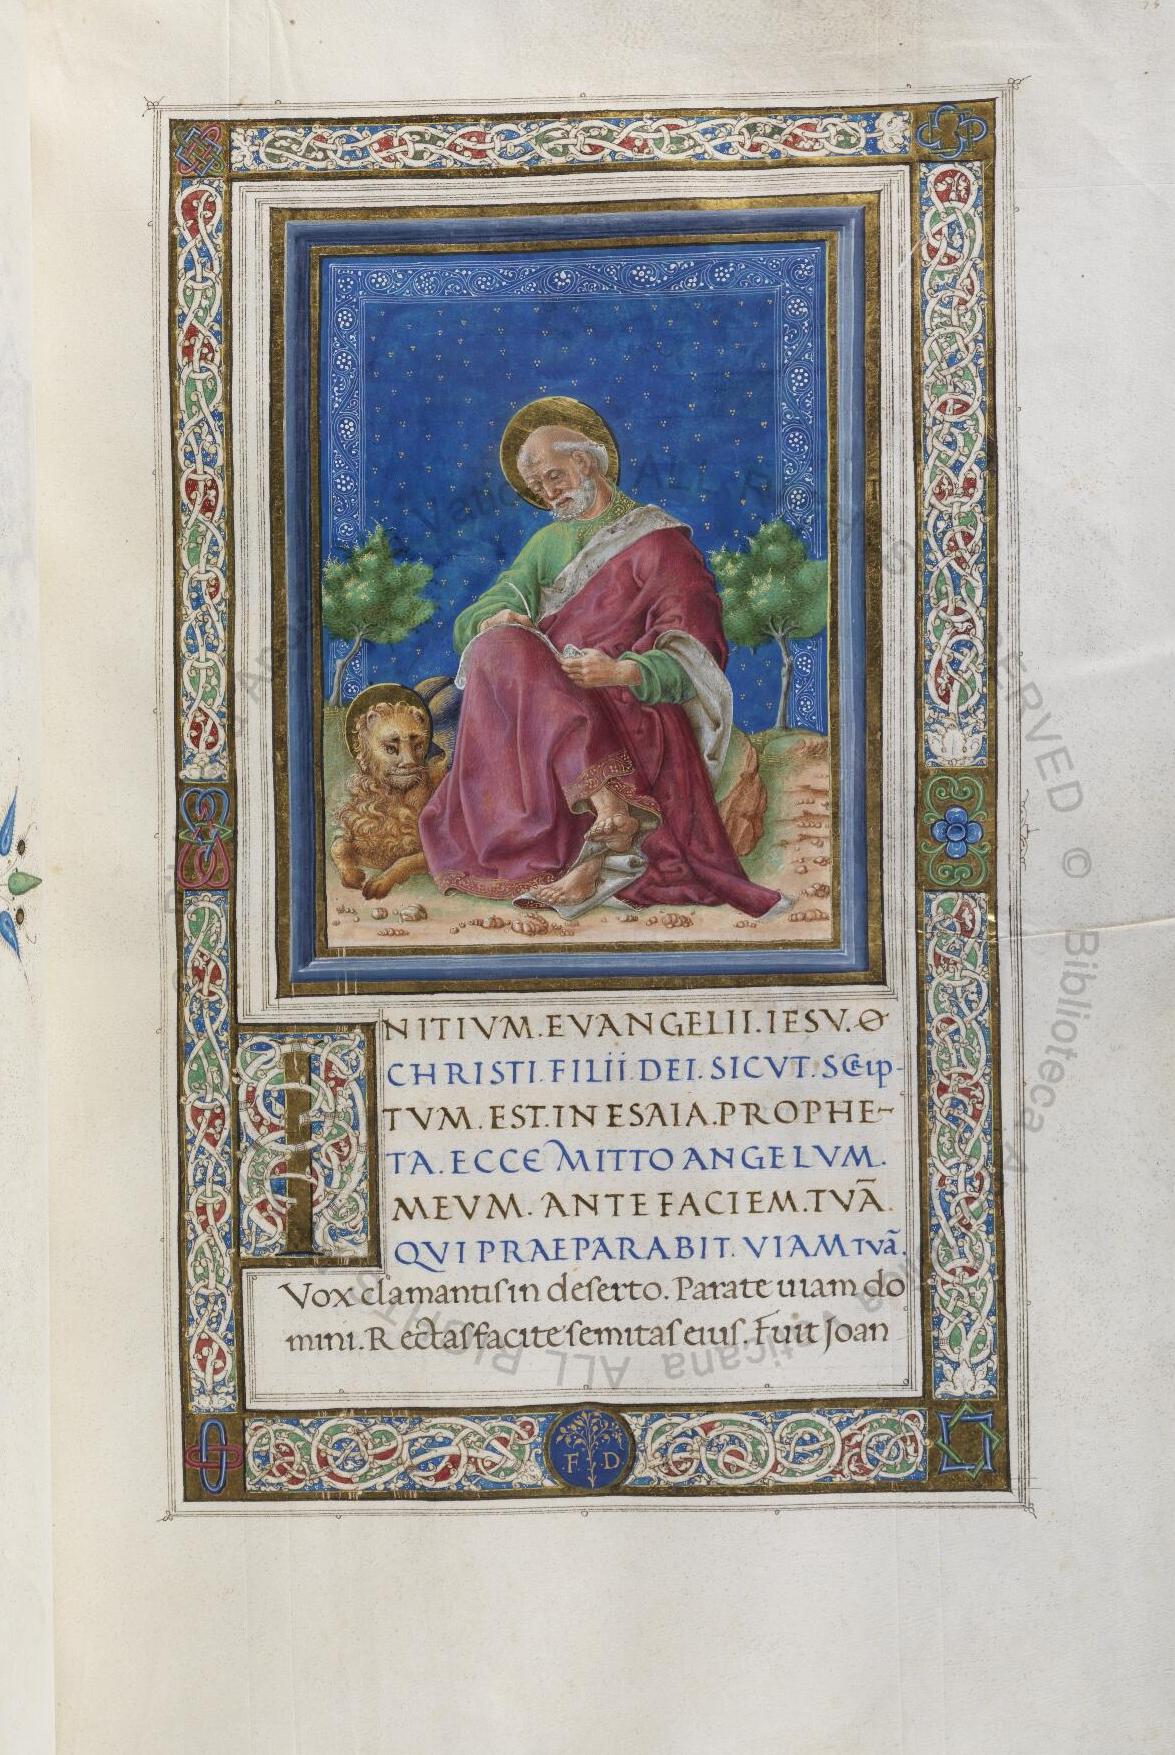 INITIVM.EVANGELII.IESV.
CHRISTI.FILII.DEI.SICVT.SCRIP-
TVM.EST.IN ESAIA.PROPHE-
TA.ECCE MITTO ANGELVM.
MEVM. ANTE FACIEM.TVĀ.
QVI PRAEPARABIT.VIAM TVĀ.
Vox clamantis in deserto. Parate uiam do
mini. Rectas facite semitas eius. Fuit Joan
·F· D·
© Biblioteca Apostolica Vaticana ALL RIGHTS RESERVED